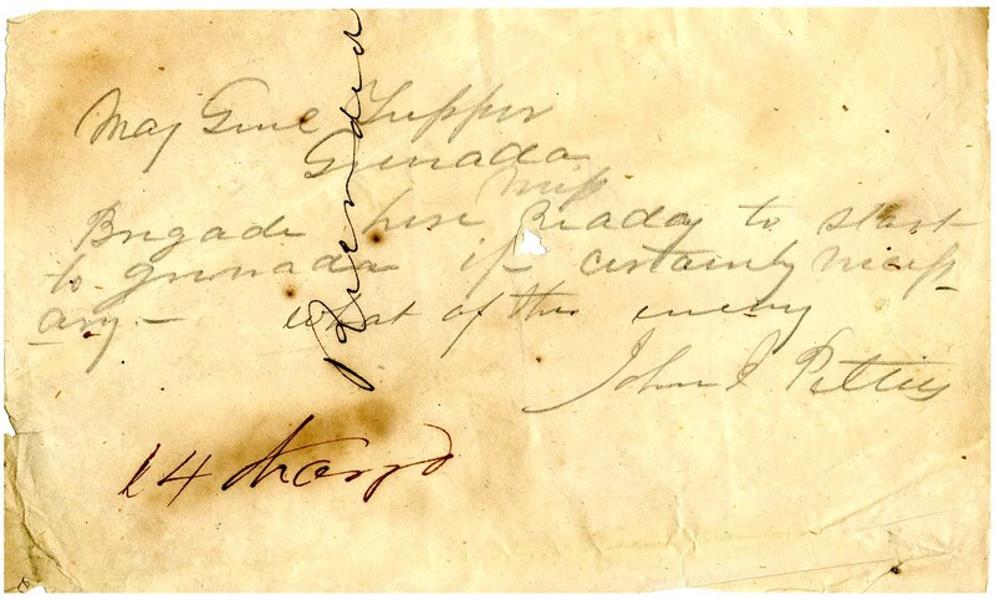 Maj Genl Tupper
Grenada
Miss
Brigade here Ready to start
to grenada if certainly necess
ary – what of the enemy
John J Pettus
14 chargd